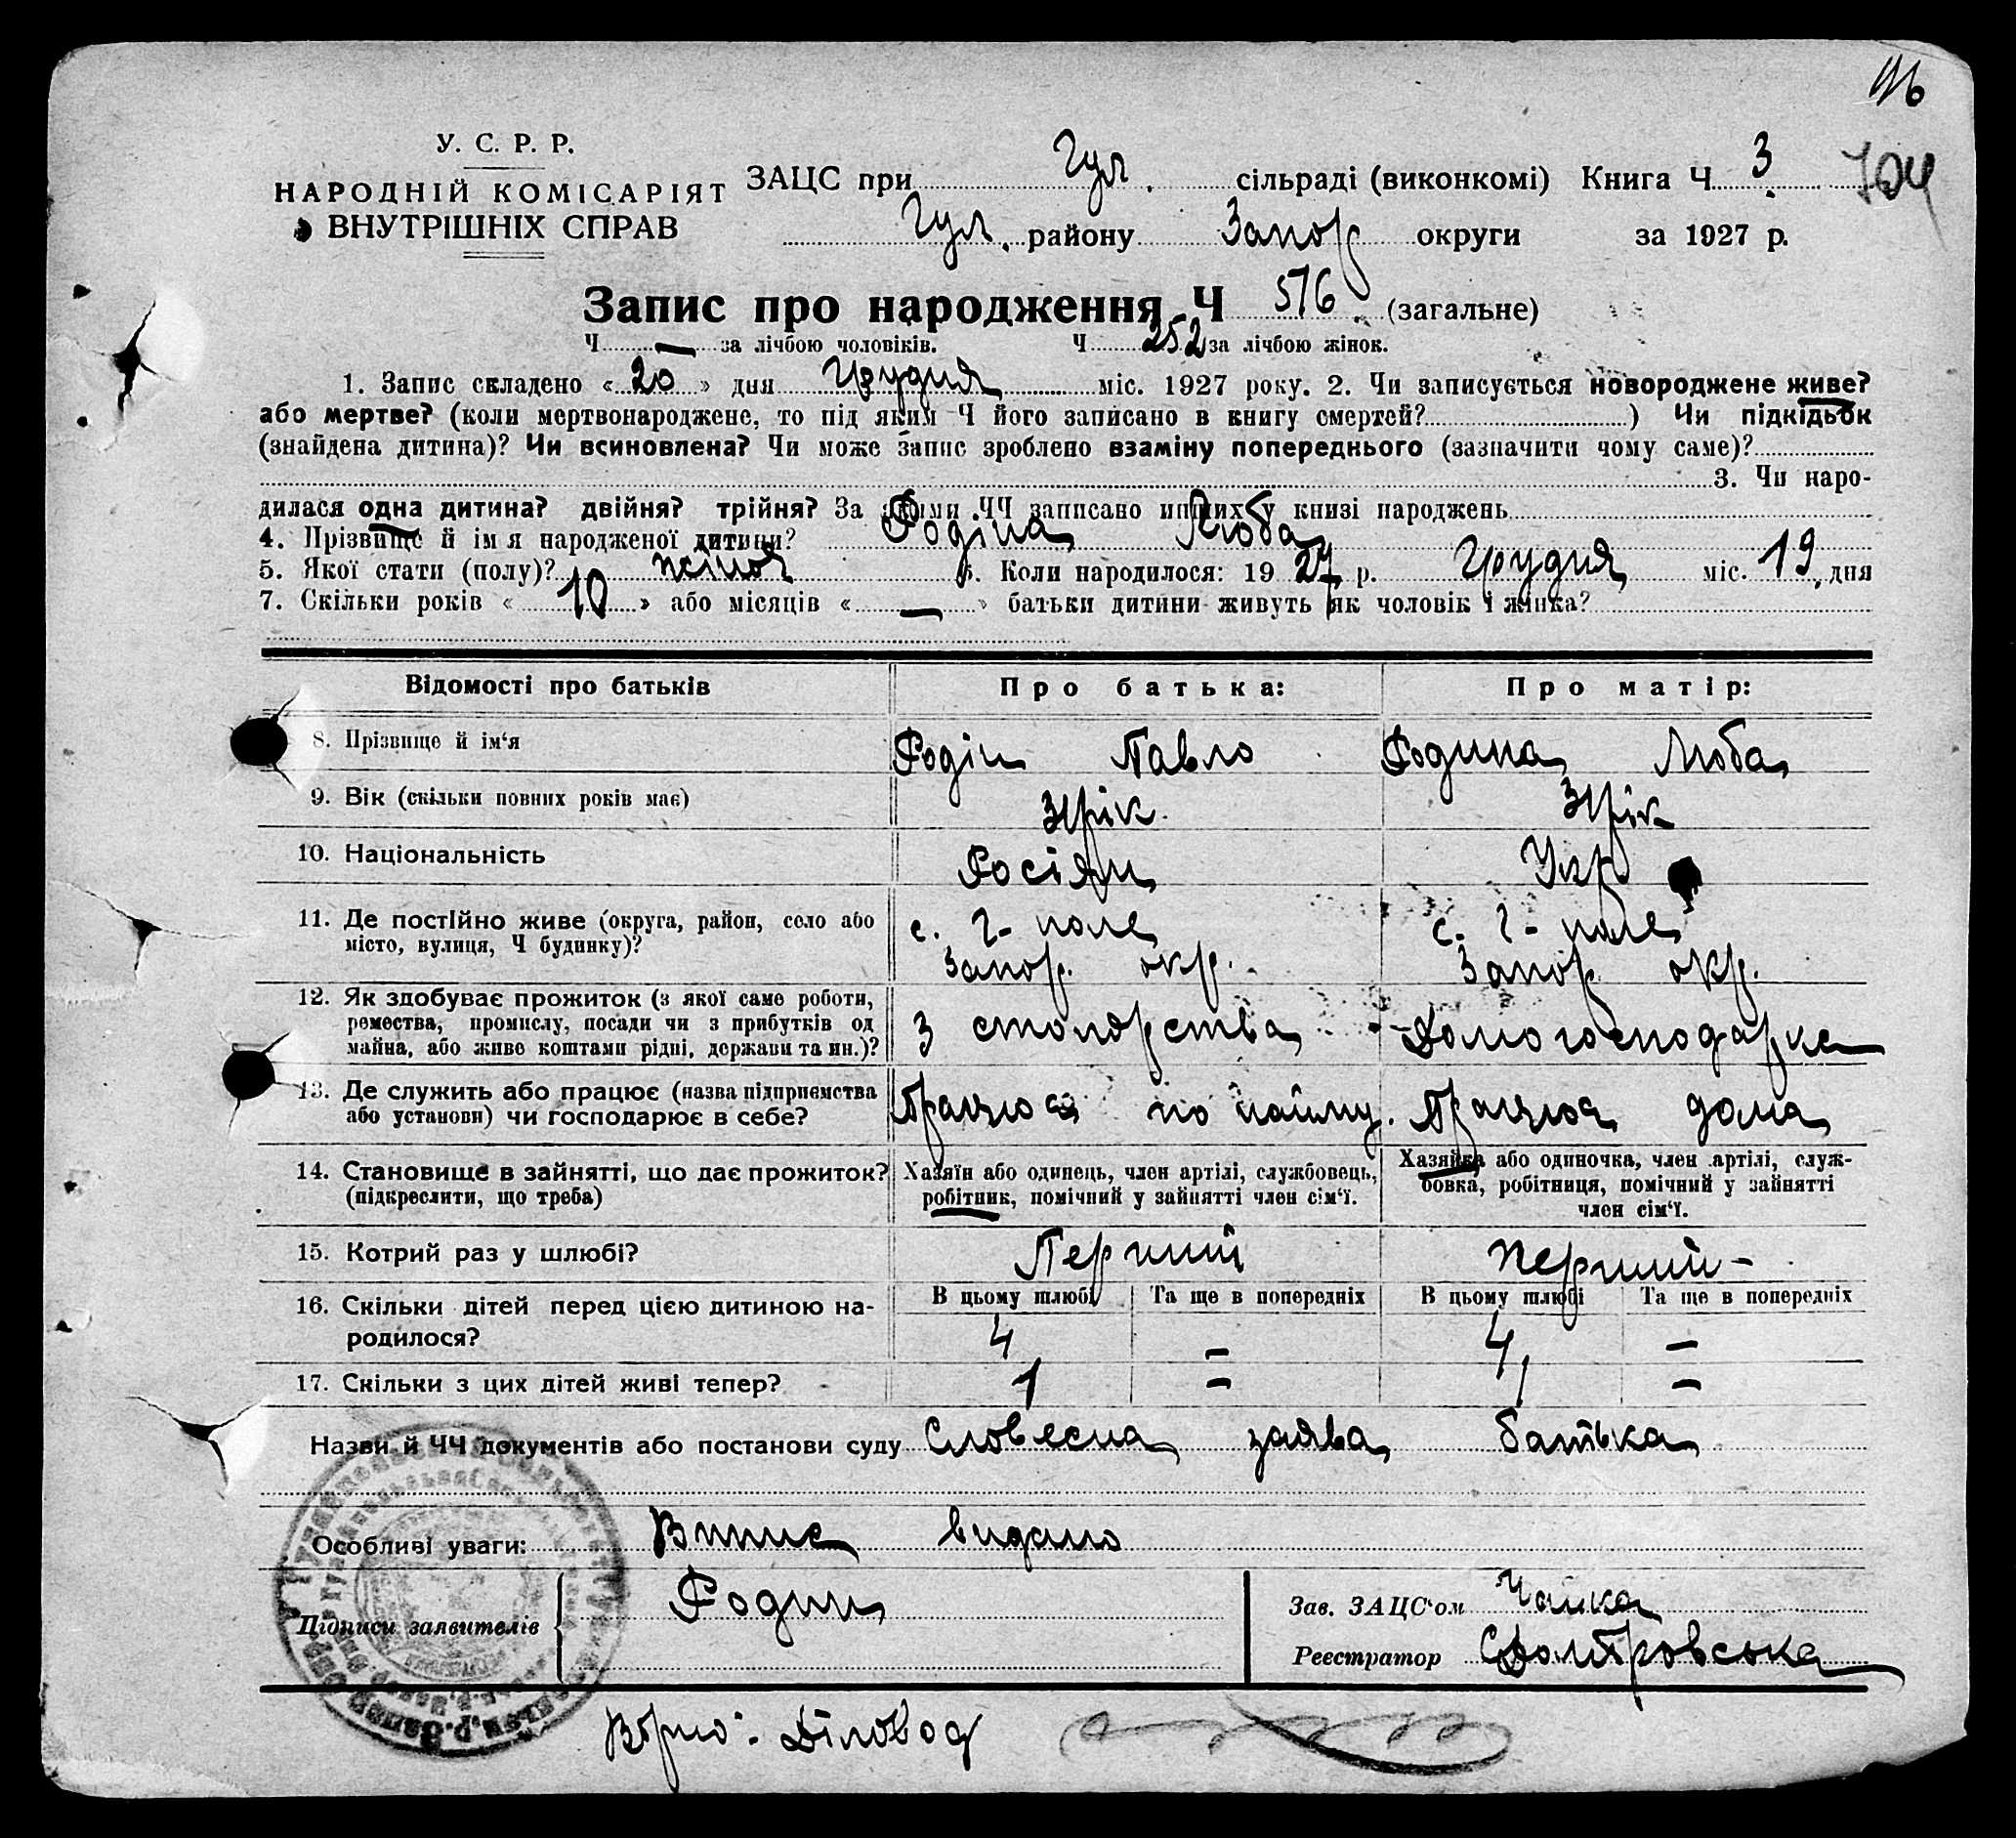 У. С. Р. Р.
НАРОДНІЙ КОМІСАРІЯТ
ВНУТРІШНІХ СПРАВ
ЗАЦС при Гул. сільраді (виконкомі) Книга Ч 3
Гул. району Запор округи за 1927 р.
Запис про народження Ч 576 (загальне)
Ч — за лічбою чоловіків. Ч 252 за лічбою жінок.
1. Запис складено «20» дня Грудня міс. 1927 року. 2. Чи записується новороджене живе?
або мертве? (коли мертвонароджене, то під яким Ч його записано в книгу смертей? ) Чи підкідьок
(знайдена дитина)? Чи всиновлена? Чи може запис зроблено взаміну попереднього (зазначити чому саме)?
3. Чи наро-
дилася одна дитина? двійня? трійня? За якими ЧЧ записано інших у книзі народжень
4. Прізвище й ім я народженої дитини? Родіна Люба
5. Якої стати (полу)? жіноч 6. Коли народилося: 1927 р. Грудня міс. 19 дня
7. Скільки років «10» або місяців «—» батьки дитини живуть як чоловік і жінка?
Відомості про батьків Про батька: Про матір:
8. Прізвище й ім'я Родін Павло Родина Люба
9. Вік (скільки повних років має)
10. Національність Росіян Укр
11. Де постійно живе (округа, район, село або
місто, вулиця, Ч будинку)?
с. Г-поле с. Г-поле
Запор. окр. Запор окр.
12. Як здобуває прожиток (з якої саме роботи,
ремества, промислу, посади чи з прибутків од
майна, або живе коштами рідні, держави та ин.)?
З столярства Домогосподарка
13. Де служить або працює (назва підприємства
або установи) чи господарює в себе?
Працює по найму. Працює дома
14. Становище в зайнятті, що дає прожиток?
(підкреслити, що треба)
Хазяїн або одинець, член артілі, службовець,
робітник, помічний у зайнятті член сім'ї.
Хазяйка або одиночка, член артілі, служ-
бовка, робітниця, помічний у зайнятті
член сім'ї.
15. Котрий раз у шлюбі? Перший Перший -
16. Скільки дітей перед цією дитиною на-
родилося?
В цьому шлюбі Та ще в попередніх В цьому шлюбі Та ще в попередніх
4 — 4 —
17. Скільки з цих дітей живі тепер? 1 — 1 —
Назви й ЧЧ документів або постанови суду Словесна заява батька
Особливі уваги: Випис видано
Підписи заявителів Родин
Зав. ЗАЦС'ом Чайка
Реєстратор
Вірно: Діловод